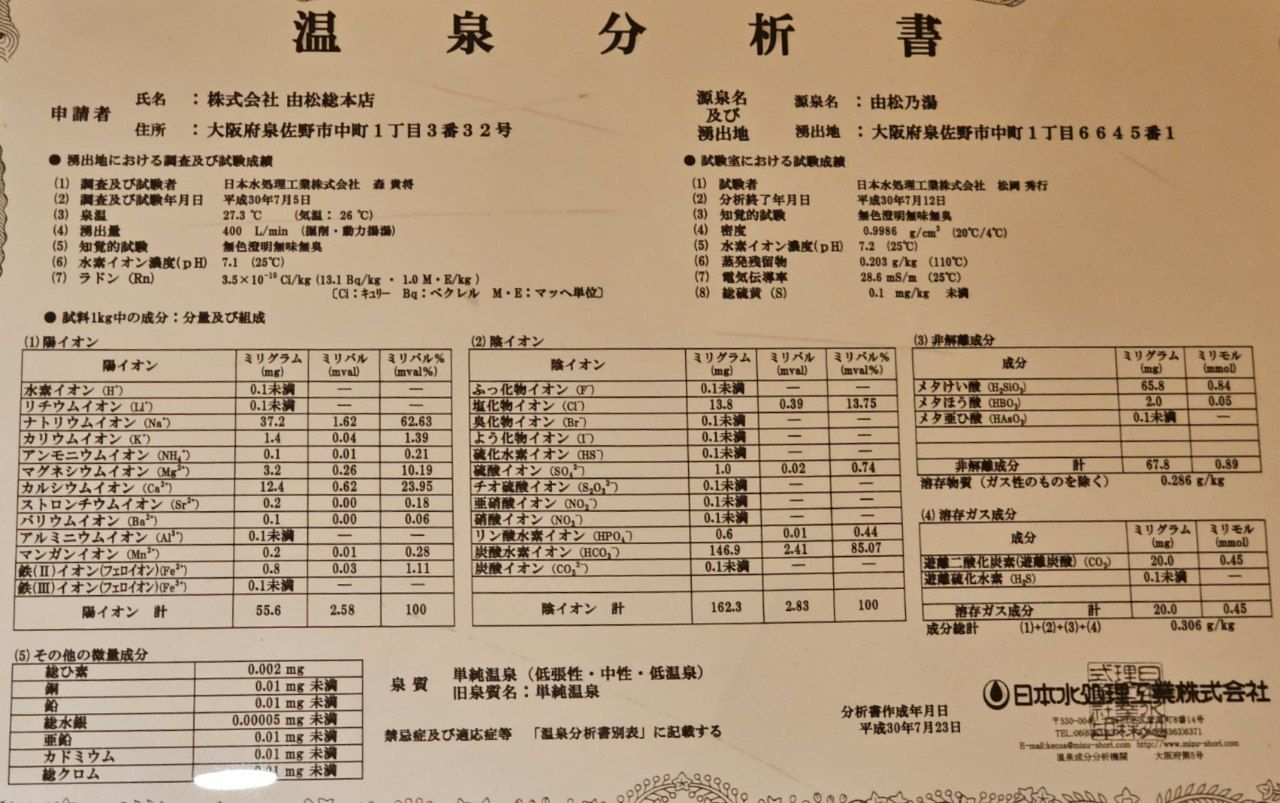 温泉分析書
申請者
氏名 ：株式会社 由松総本店
住所 ：大阪府泉佐野市中町１丁目３番３２号
源泉名及び湧出地
源泉名 ：由松乃湯
湧出地 ：大阪府泉佐野市中町１丁目６６４５番１
● 湧出地における調査及び試験成績
(1) 調査及び試験者 日本水処理工業株式会社 森 貴将
(2) 調査及び試験年月日 平成30年7月5日
(3) 泉温 27.3 ℃ (気温： 26 ℃)
(4) 湧出量 400 L/min (掘削・動力揚湯)
(5) 知覚的試験 無色澄明無味無臭
(6) 水素イオン濃度(pH) 7.1 (25℃)
(7) ラドン (Rn) 3.5×10⁻¹⁰ Ci/kg (13.1 Bq/kg ・ 1.0 M・E/kg )
〔Ci：キュリー Bq：ベクレル M・E：マッヘ単位〕
● 試験室における試験成績
(1) 試験者 日本水処理工業株式会社 松岡 秀行
(2) 分析終了年月日 平成30年7月12日
(3) 知覚的試験 無色澄明無味無臭
(4) 密度 0.9986 g/cm³ (20℃/4℃)
(5) 水素イオン濃度(pH) 7.2 (25℃)
(6) 蒸発残留物 0.203 g/kg (110℃)
(7) 電気伝導率 28.6 mS/m (25℃)
(8) 総硫黄 (S) 0.1 mg/kg 未満
● 試料1kg中の成分：分量及び組成
(1) 陽イオン
陽イオン ミリグラム(mg) ミリバル(mval) ミリバル%(mval%)
水素イオン (H⁺) 0.1未満 — —
リチウムイオン (Li⁺) 0.1未満 — —
ナトリウムイオン (Na⁺) 37.2 1.62 62.63
カリウムイオン (K⁺) 1.4 0.04 1.39
アンモニウムイオン (NH₄⁺) 0.1 0.01 0.21
マグネシウムイオン (Mg²⁺) 3.2 0.26 10.19
カルシウムイオン (Ca²⁺) 12.4 0.62 23.95
ストロンチウムイオン (Sr²⁺) 0.2 0.00 0.18
バリウムイオン (Ba²⁺) 0.1 0.00 0.06
アルミニウムイオン (Al³⁺) 0.1未満 — —
マンガンイオン (Mn²⁺) 0.2 0.01 0.28
鉄(Ⅱ)イオン(フェロイオン)(Fe²⁺) 0.8 0.03 1.11
鉄(Ⅲ)イオン(フェロイオン)(Fe³⁺) 0.1未満 — —
陽イオン 計 55.6 2.58 100
(2) 陰イオン
陰イオン ミリグラム(mg) ミリバル(mval) ミリバル%(mval%)
ふっ化物イオン (F⁻) 0.1未満 — —
塩化物イオン (Cl⁻) 13.8 0.39 13.75
臭化物イオン (Br⁻) 0.1未満 — —
よう化物イオン (I⁻) 0.1未満 — —
硫化水素イオン (HS⁻) 0.1未満 — —
硫酸イオン (SO₄²⁻) 1.0 0.02 0.74
チオ硫酸イオン (S₂O₃²⁻) 0.1未満 — —
亜硝酸イオン (NO₂⁻) 0.1未満 — —
硝酸イオン (NO₃⁻) 0.1未満 — —
リン酸水素イオン (HPO₄⁻) 0.6 0.01 0.44
炭酸水素イオン (HCO₃⁻) 146.9 2.41 85.07
炭酸イオン (CO₃²⁻) 0.1未満 — —
陰イオン 計 162.3 2.83 100
(3) 非解離成分
成分 ミリグラム(mg) ミリモル(mmol)
メタけい酸 (H₂SiO₃) 65.8 0.84
メタほう酸 (HBO₂) 2.0 0.05
メタ亜ひ酸 (HAsO₂) 0.1未満 —
非解離成分 計 67.8 0.89
溶存物質 (ガス性のものを除く) 0.286 g/kg
(4) 溶存ガス成分
成分 ミリグラム(mg) ミリモル(mmol)
遊離二酸化炭素(遊離炭酸) (CO₂) 20.0 0.45
遊離硫化水素 (H₂S) 0.1未満 —
溶存ガス成分 計 20.0 0.45
成分総計 (1)+(2)+(3)+(4) 0.306 g/kg
(5) その他の微量成分
総ひ素 0.002 mg
銅 0.01 mg 未満
鉛 0.01 mg 未満
総水銀 0.00005 mg 未満
亜鉛 0.01 mg 未満
カドミウム 0.01 mg 未満
総クロム mg 未満
泉質 単純温泉 (低張性・中性・低温泉)
旧泉質名：単純温泉
禁忌症及び適応症等 「温泉分析書別表」に記載する
分析書作成年月日
平成30年7月23日
日本水処理工業株式会社
E-mail:kensa@mizu-shori.com http://www.mizu-shori.com
温泉成分分析機関 大阪府第5号